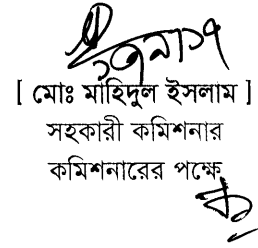 [ মোঃ মাহিদুল ইসলাম ]
সহকারী কমিশনার
কমিশনারের পক্ষে